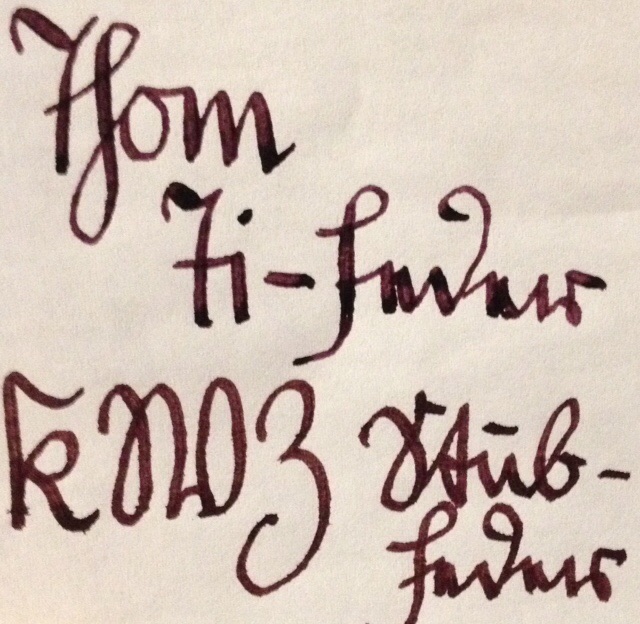 Thom
Ti-Feder
KWZ Stub-
Feder